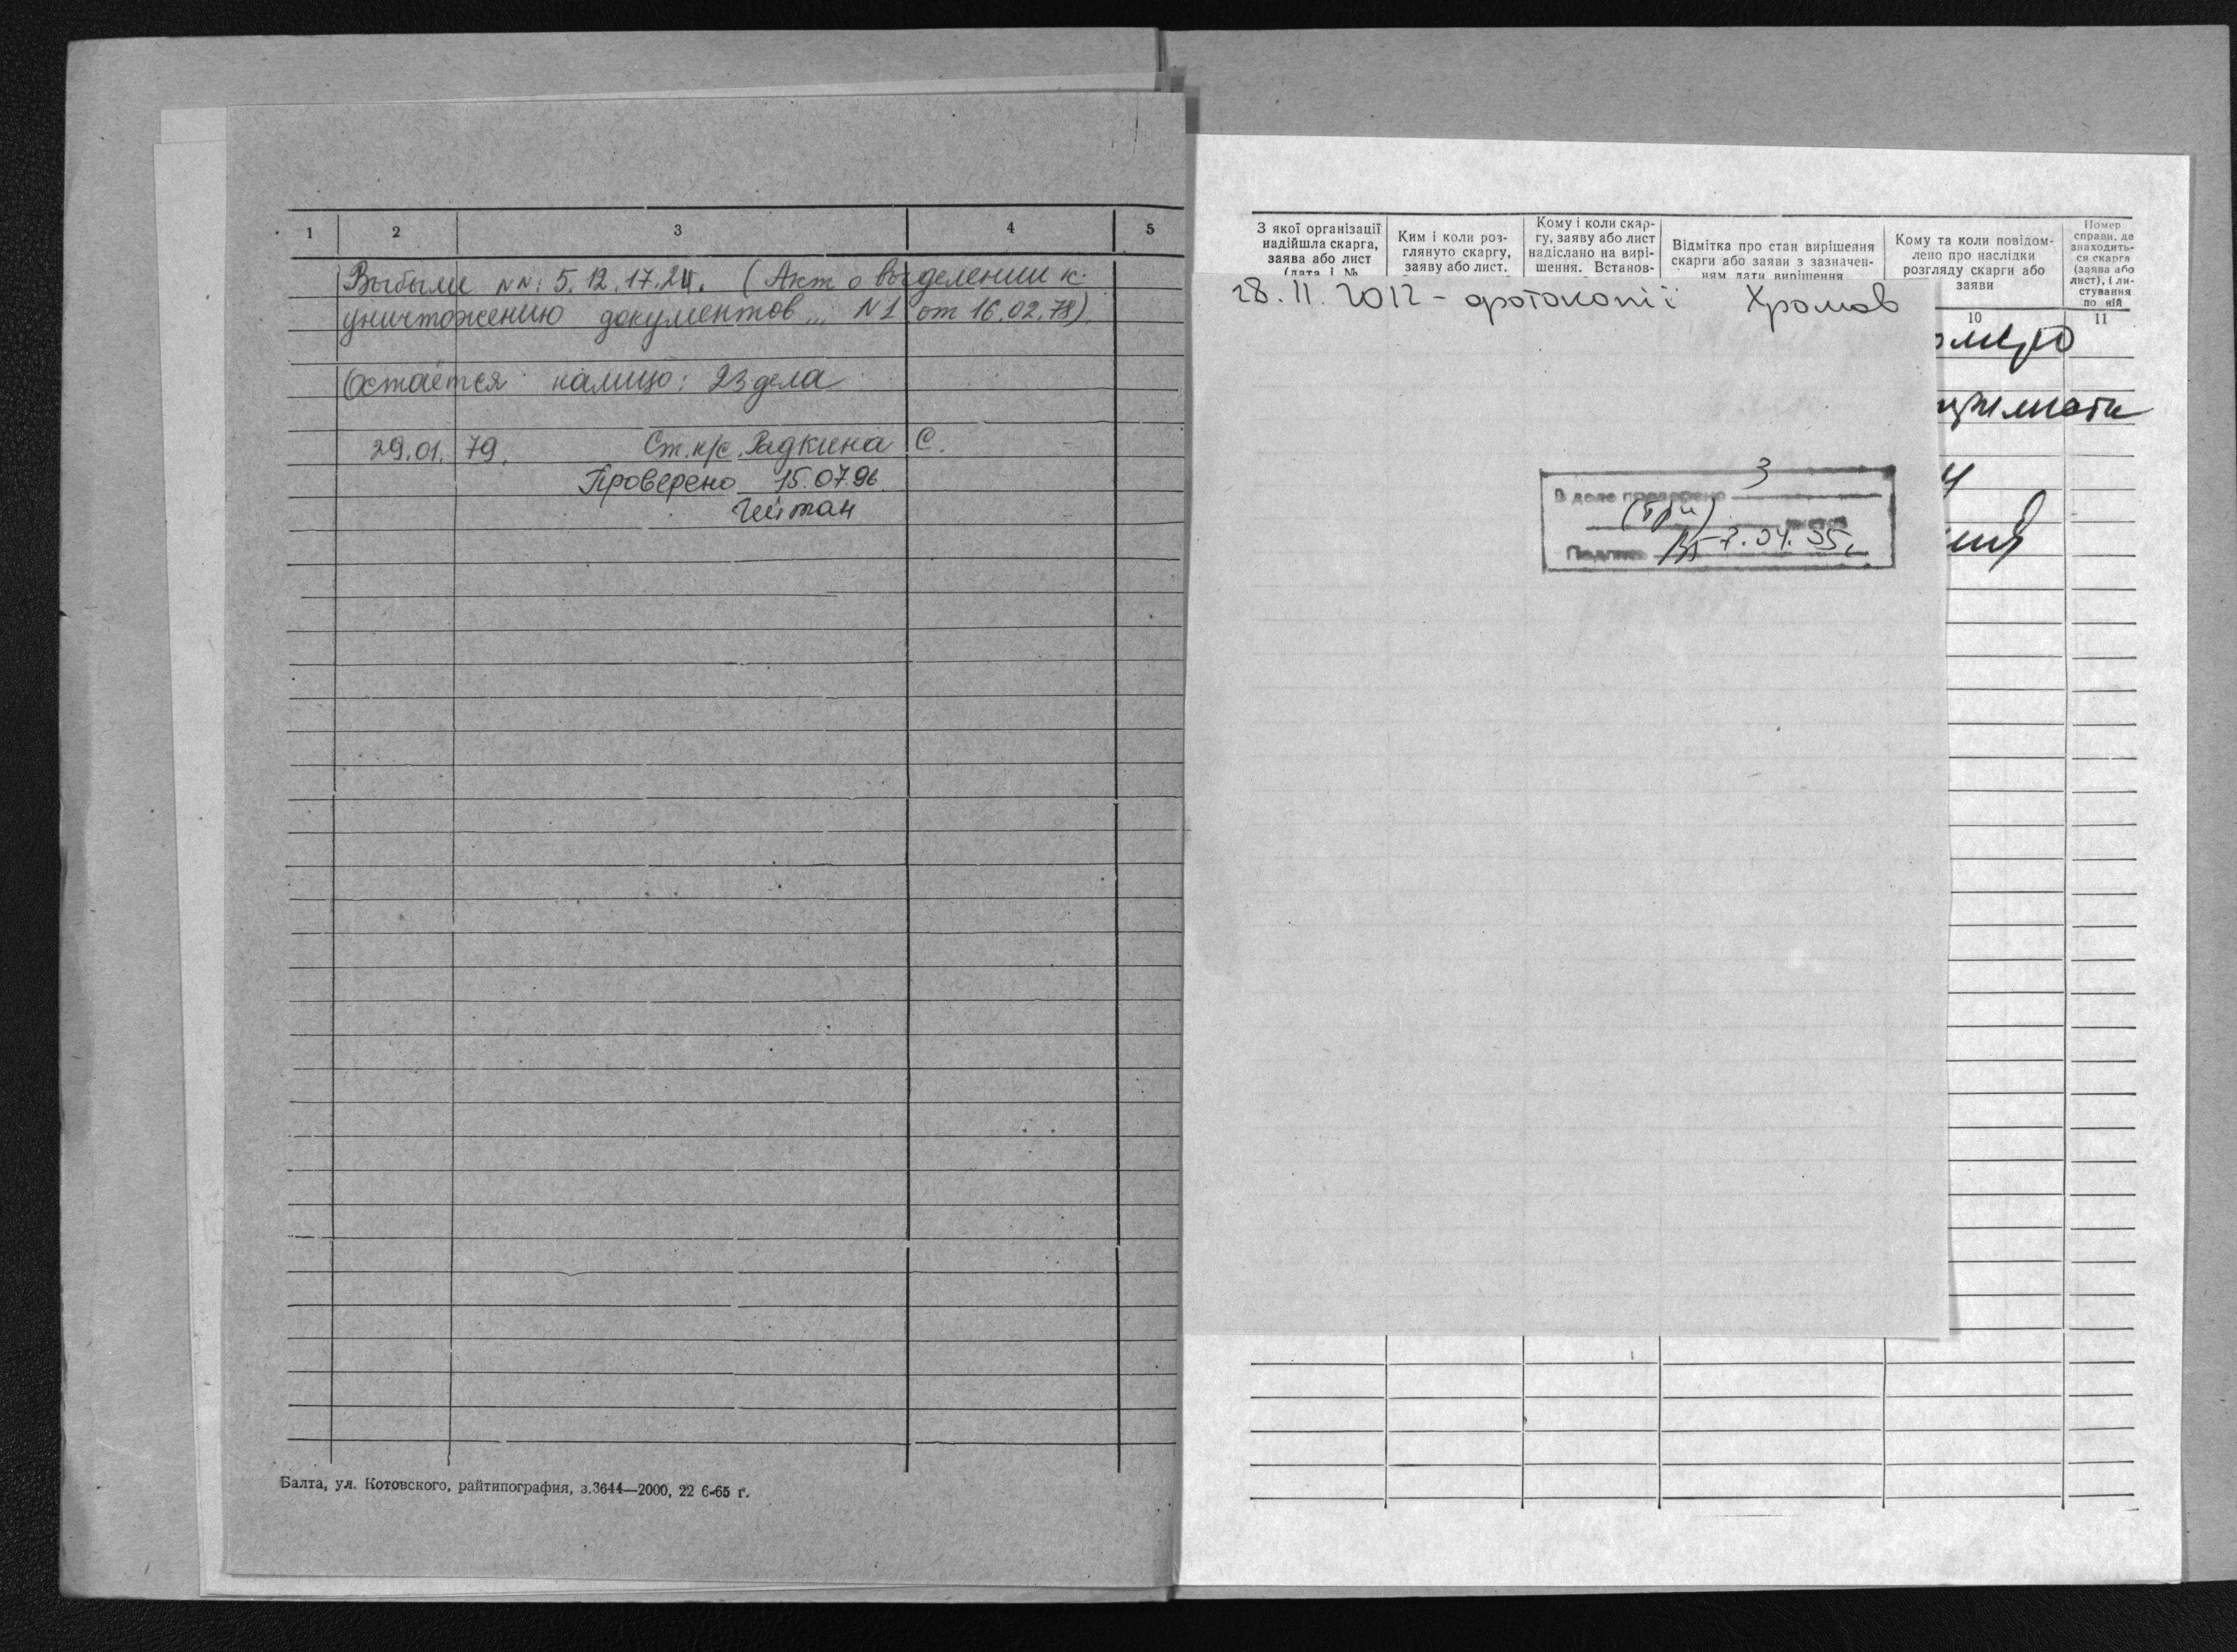 1 2 3 4 5
Выбыли NN: 5, 12, 17, 24. (Акт о выделении к
уничтожению документов ,,, N1 от 16.02.78)
Остаётся налицо: 23 дела
29.01.79. Ст. н/с. Радкина С.
Проверено 15.07.96.
Балта, ул. Котовского, райтипография, з.3644—2000, 22 6-65 г.
З якої організації
надійшла скарга,
заява або лист
(дата і №
Ким і коли роз-
глянуто скаргу,
заяву або лист.
Кому і коли скар-
гу, заяву або лист
надіслано на вирі-
шення. Встанов-
Відмітка про стан вирішення
скарги або заяви з зазначен-
ням дати вирішення
Кому та коли повідом-
лено про наслідки
розгляду скарги або
заяви
Номер
справи, де
знаходить-
ся скарга
(заява або
лист), і ли-
стування
по ній
10 11
28.11.2012 - фотокопії Хромов
В деле проверено 3
(три) листов
Подпись 7.04.95г